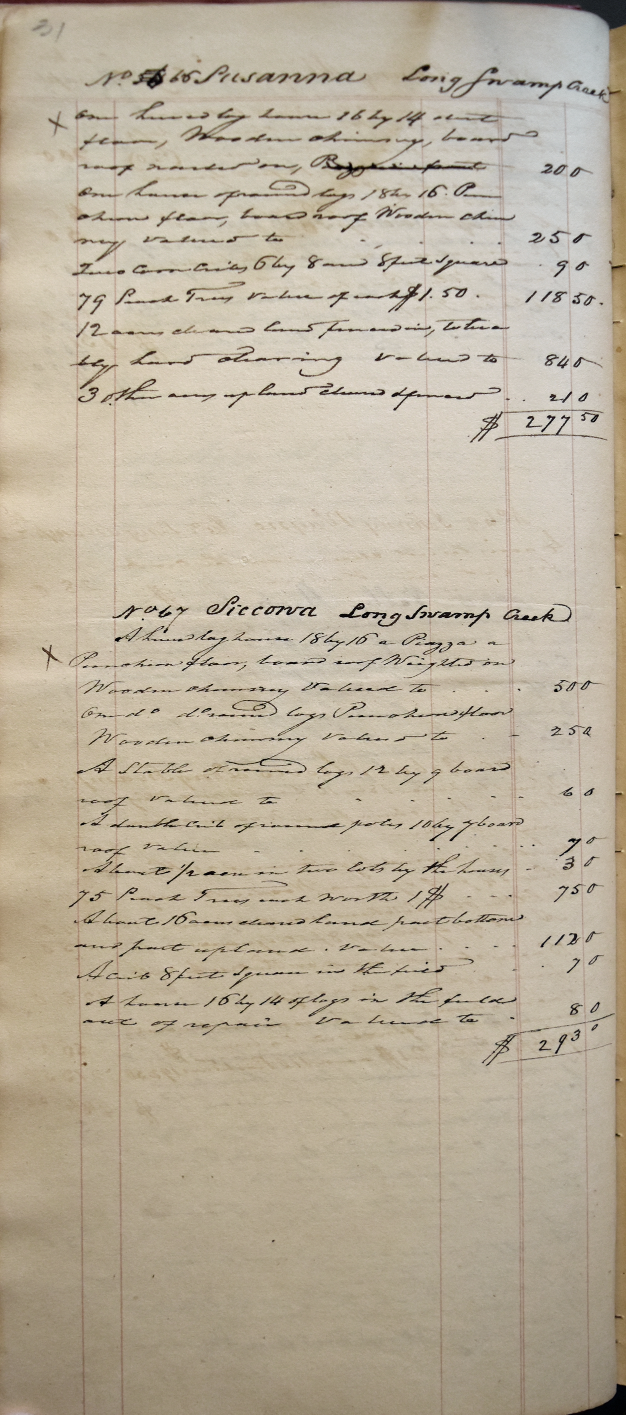 31
No 66 Susanna Long Swamp Creek
X One hewed log house 16 by 14 dirt
floor, Wooden chimney, board
roof nailed on, 20 0
One house of round logs 18 by 16 Pun
cheon floor, board roof Wooden chim
ney valued to 25 0
Two Corn Cribs 6 by 8 and 8 feet square 9 0
79 Peach Trees value of each $1.50. 118 50.
12 acres cleared land fenced in, tolera
bly hard clearing valued to 84 0
3 other acres upland cleared & fenced 21 0
$ 277 50
No 67 Siccowa Long Swamp Creek
X A hewed log house 18 by 16 a Piazza a
Puncheon floor, board roof Weighted on
Wooden chimney Valued to 50 0
One do do round logs Puncheon floor
Wooden chimney valued to 25 0
A Stable of round logs 12 by 9 board
roof valued to 6 0
A double crib of round poles 10 by 7 board
roof value 7 0
About 1/2 acre in two lots by the houses 3 0
75 Peach Trees each worth 1$ 75 0
About 16 acres cleared land part bottom
and part upland. Value 112 0
A crib 8 feet square in the field 7 0
A house 16 by 14 of logs in the field
out of repair Valued to 8 0
$ 293 0